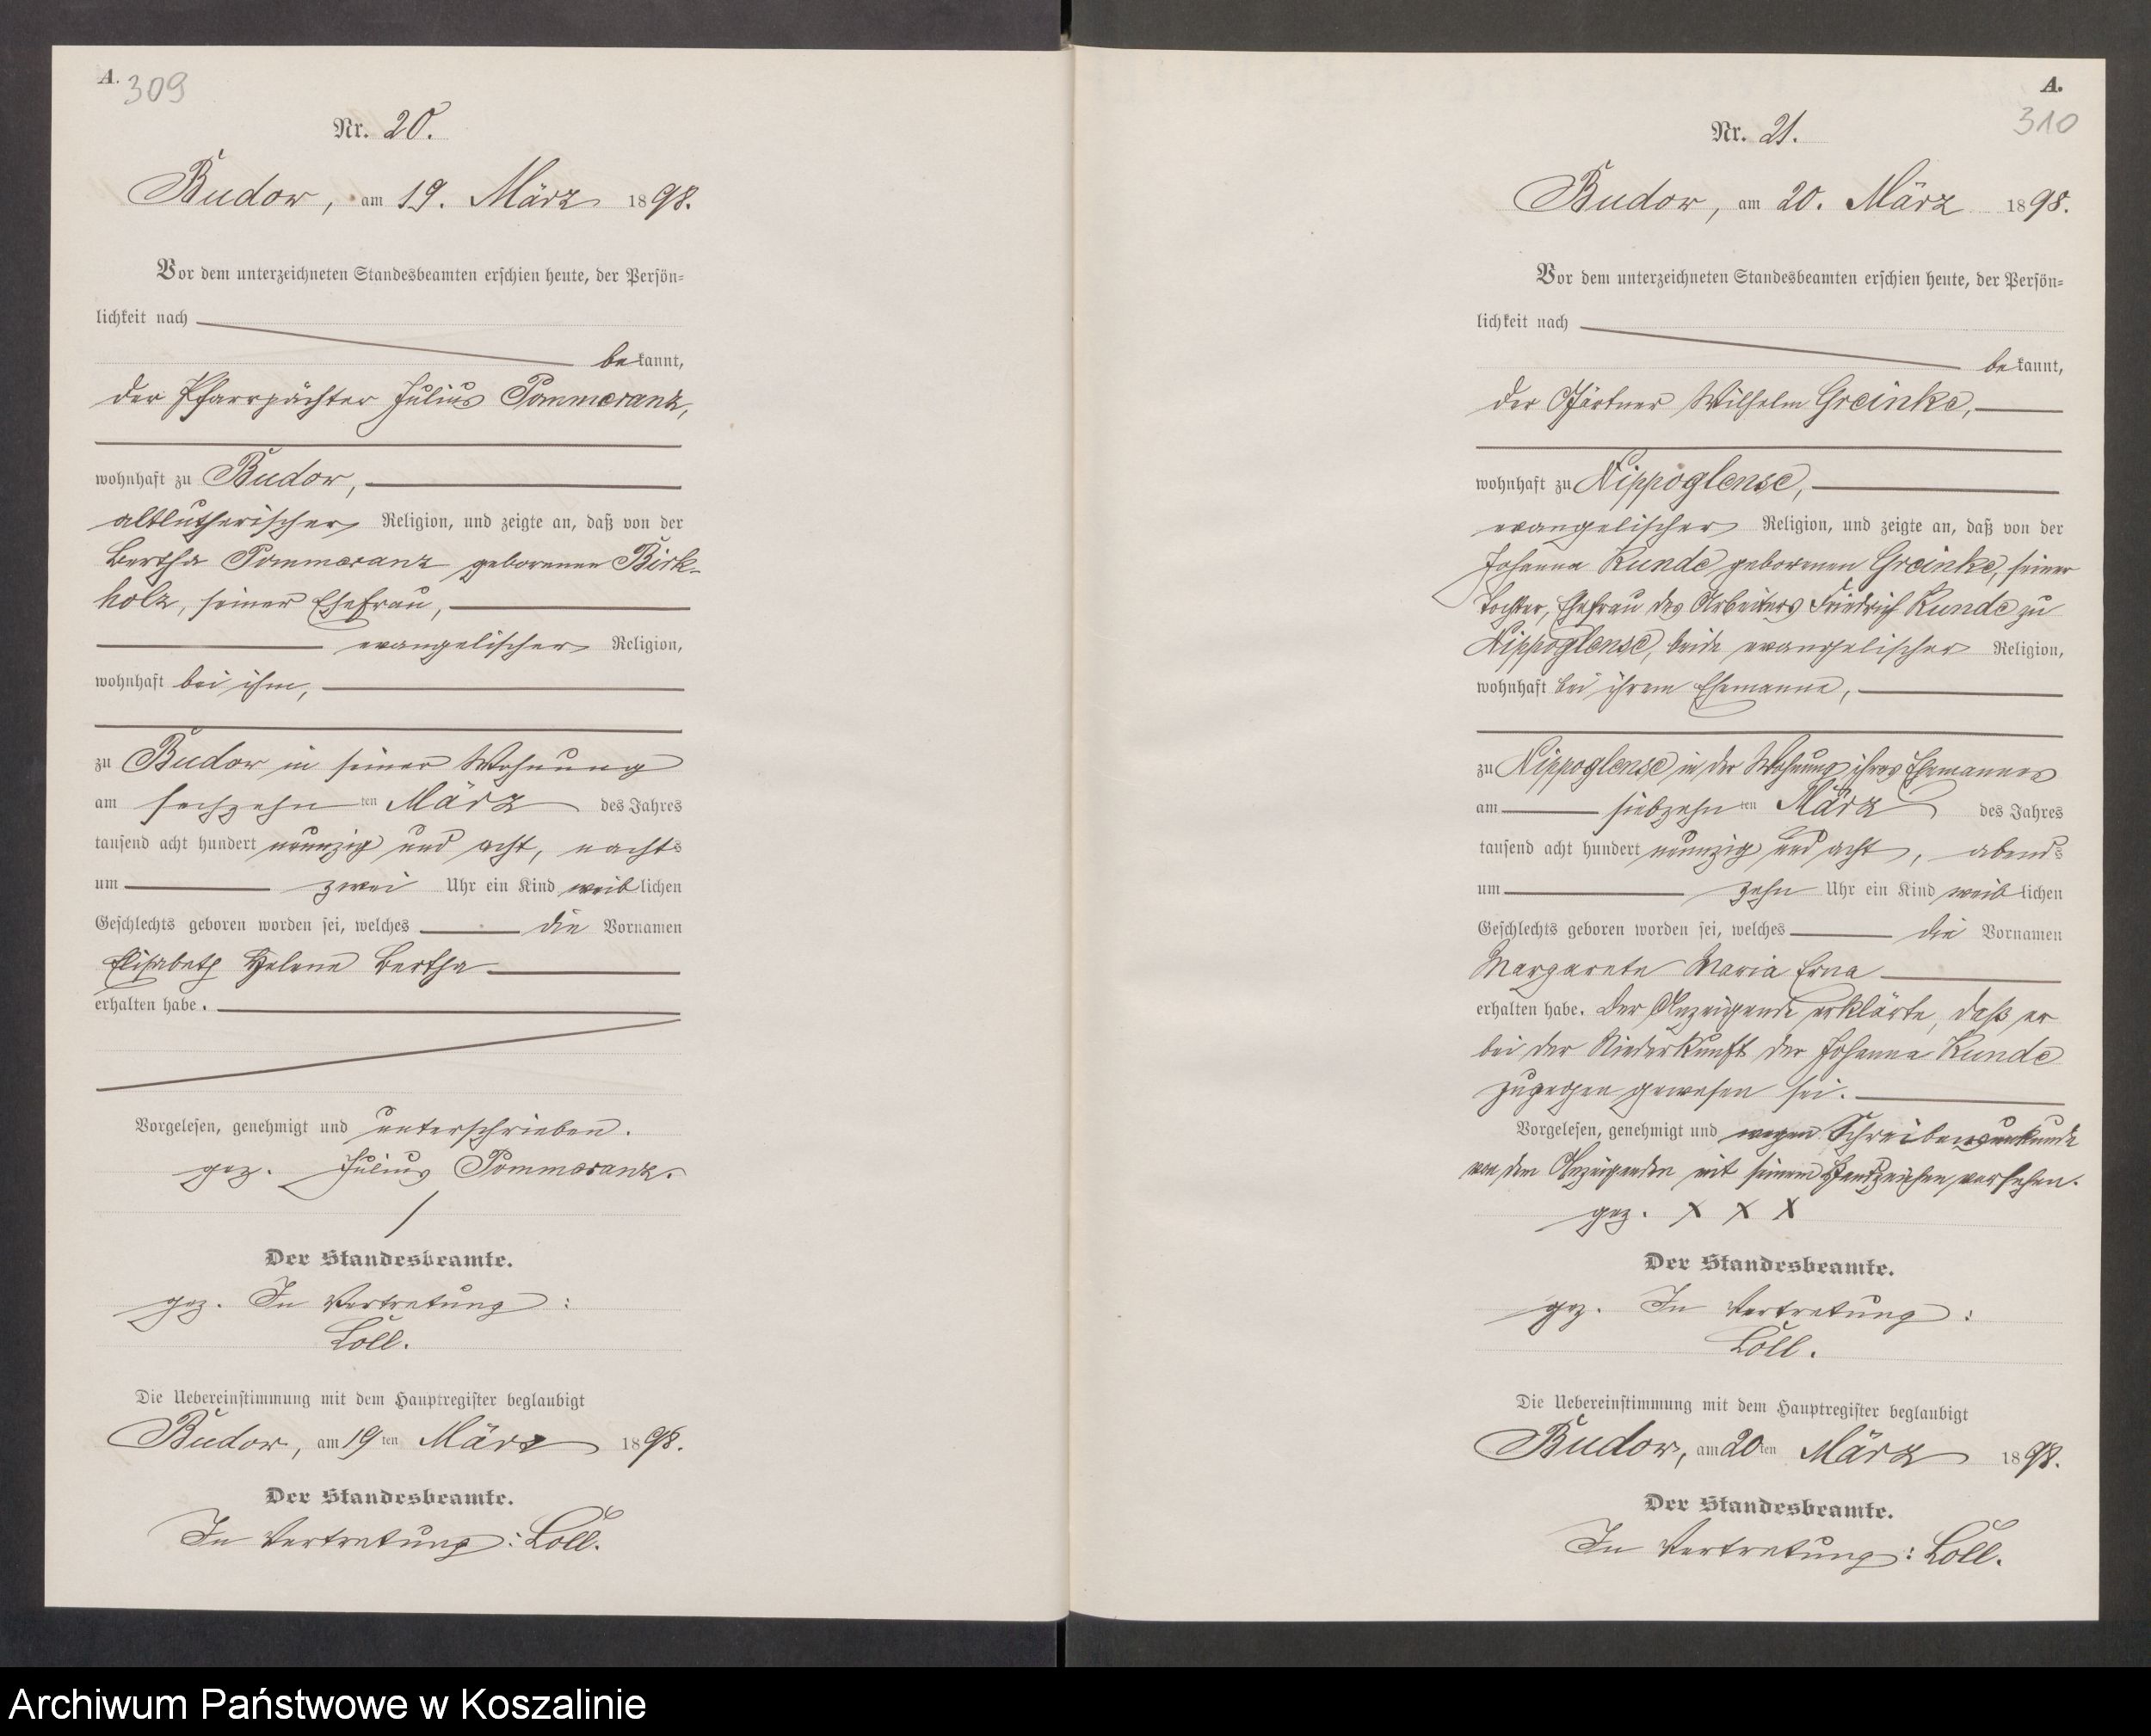 A.
309
Nr. 20.
Budow, am 19. März 1898.
Vor dem unterzeichneten Standesbeamten erschien heute, der Persön-
lichkeit nach
bekannt,
der Pfarrpächter Julius Pommeranz,
wohnhaft zu Budow,
altlutherischer Religion, und zeigte an, daß von der
Bertha Pommeranz geborenen Birk-
holz, seiner Ehefrau,
evangelischer Religion,
wohnhaft bei ihm,
zu Budow in seiner Wohnung
am sechzehnten März des Jahres
tausend acht hundert neunzig und acht, nachts
um zwei Uhr ein Kind weiblichen
Geschlechts geboren worden sei, welches die Vornamen
Elisabeth Helene Bertha
erhalten habe.
Vorgelesen, genehmigt und unterschrieben.
gez. Julius Pommeranz.
Der Standesbeamte.
gez. In Vertretung:
Loll.
Die Uebereinstimmung mit dem Hauptregister beglaubigt
Budow, am 19ten März 1898.
Der Standesbeamte.
In Vertretung: Loll.
A.
310
Nr. 21.
Budow, am 20. März 1898.
Vor dem unterzeichneten Standesbeamten erschien heute, der Persön-
lichkeit nach
bekannt,
der Gärtner Wilhelm Greinke,
wohnhaft zu Nippoglense,
evangelischer Religion, und zeigte an, daß von der
Johanna Kunde geborenen Greinke, seiner
Tochter, Ehefrau des Arbeiters Friedrich Kunde zu
Nippoglense, beide evangelischer Religion,
wohnhaft bei ihrem Ehemanne,
zu Nippoglense in der Wohnung ihres Ehemannes
am siebzehnten März des Jahres
tausend acht hundert neunzig und acht, abends
um zehn Uhr ein Kind weiblichen
Geschlechts geboren worden sei, welches die Vornamen
Margarete Maria Erna
erhalten habe. Der Anzeigende erklärte, daß er
bei der Niederkunft der Johanna Kunde
zugegen gewesen sei.
Vorgelesen, genehmigt und wegen Schreibensunkunde
von dem Anzeigenden mit seinem Handzeichen versehen.
gez. X X X
Der Standesbeamte.
gez. In Vertretung:
Loll.
Die Uebereinstimmung mit dem Hauptregister beglaubigt
Budow, am 20ten März 1898.
Der Standesbeamte.
In Vertretung: Loll.
Archiwum Państwowe w Koszalinie